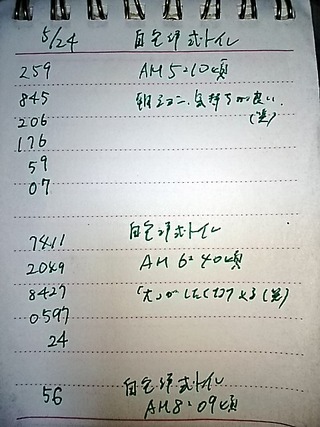 5/24 自宅洋式トイレ
259 AM 5:10頃
845 朝シコ、気持ちが良い。
206 (笑)
176
59
07
7411 自宅洋式トイレ
2049 AM 6:40頃
8427 「大」がしたくなるよる(笑)
0597
24
56 自宅洋式トイレ
AM 8:09頃